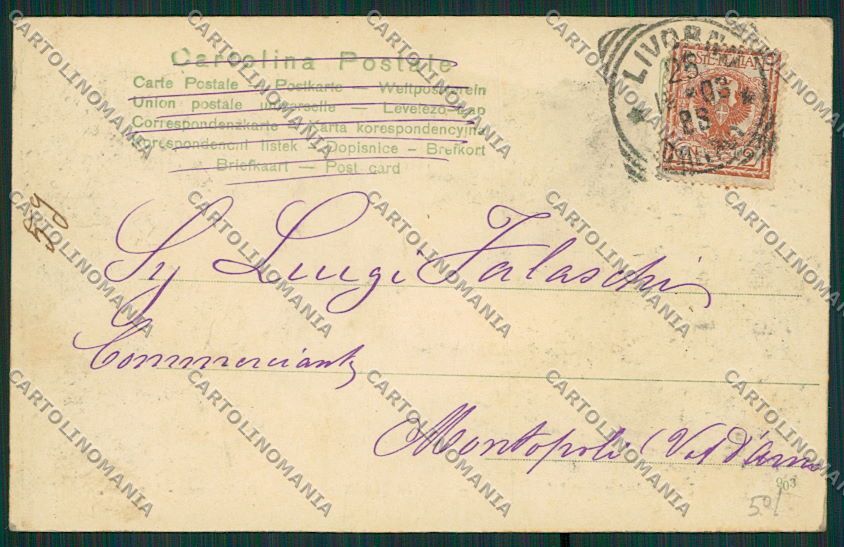 Cartolina Postale
Carte Postale — Postkarte — Weltpostverein
Union postale universelle — Levelező-Lap
Correspondenzkarte — Karta korespondencyjna
Korespondencni listek — Dopisnice — Brefkort
Briefkaart — Post card
LIVORNO
28
12 - 03
8S
59
Sg Luigi Falaschi
Commerciante
Montopoli (Val d'Arno
903
50/
CARTOLINOMANIA